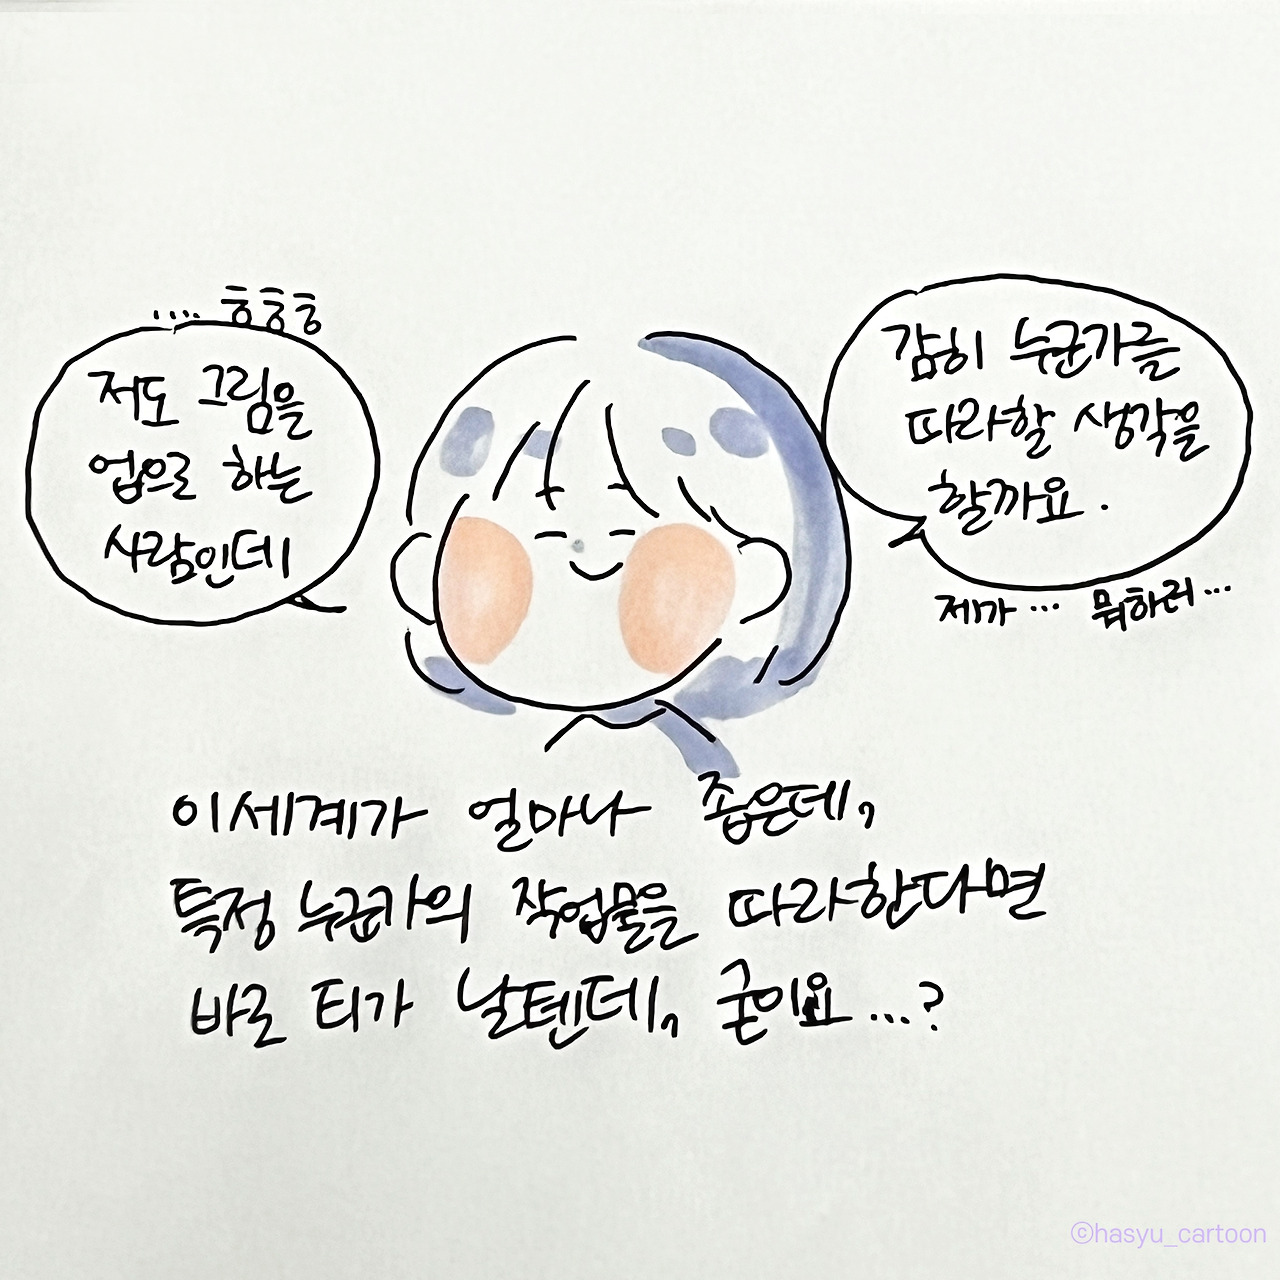 .... ㅎㅎㅎ
저도 그림을
업으로 하는
사람인데
감히 누군가를
따라할 생각을
할까요.
제가... 뭐하러...
이세계가 얼마나 좁은데,
특정 누군가의 작업물을 따라한다면
바로 티가 날텐데, 굳이요...?
©hasyu_cartoon